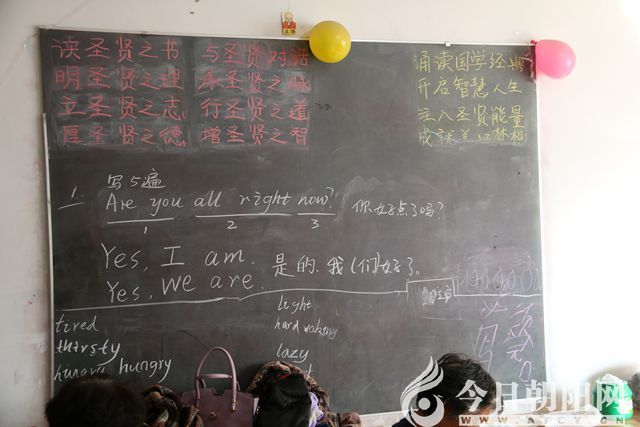 读圣贤之书 与圣贤对話
明圣贤之理 承圣贤之
立圣贤之志 行圣贤之道
厚圣贤之德 增圣贤之智
诵读国学经典
开启智慧人生
注入圣贤能量
写5遍
一. Are you all right now? 你好点了吗?
1 2 3
Yes, I am. 是的.我(们)好了。
Yes, we are.
tired
thirsty
hungry hungry
light
hard woking
lazy
今日朝阳网
WWW.AFCY.CN